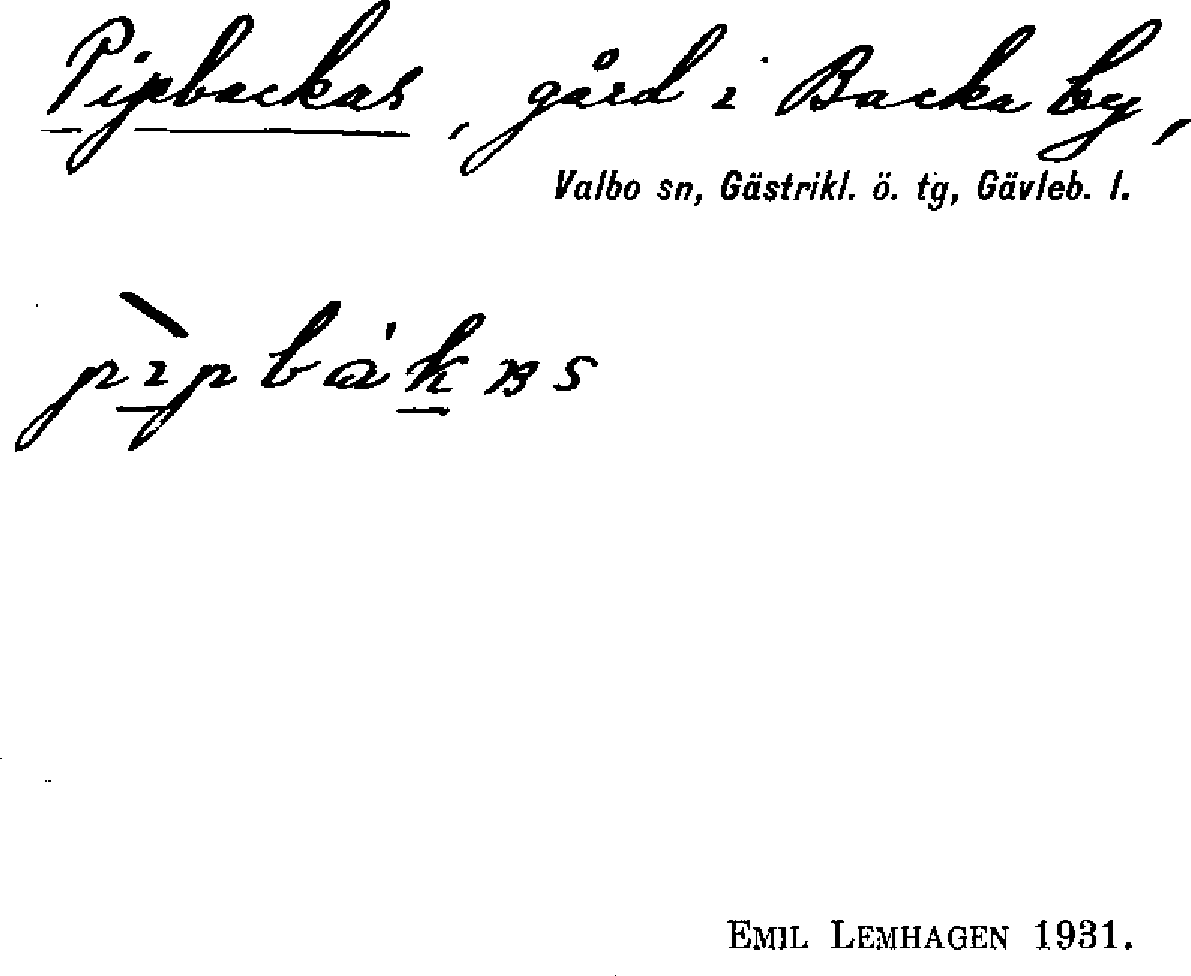 Pipbackas, gård i Backa by,
Valbo sn, Gästrikl. ö. tg, Gävleb. l.
EMIL LEMHAGEN 1931.